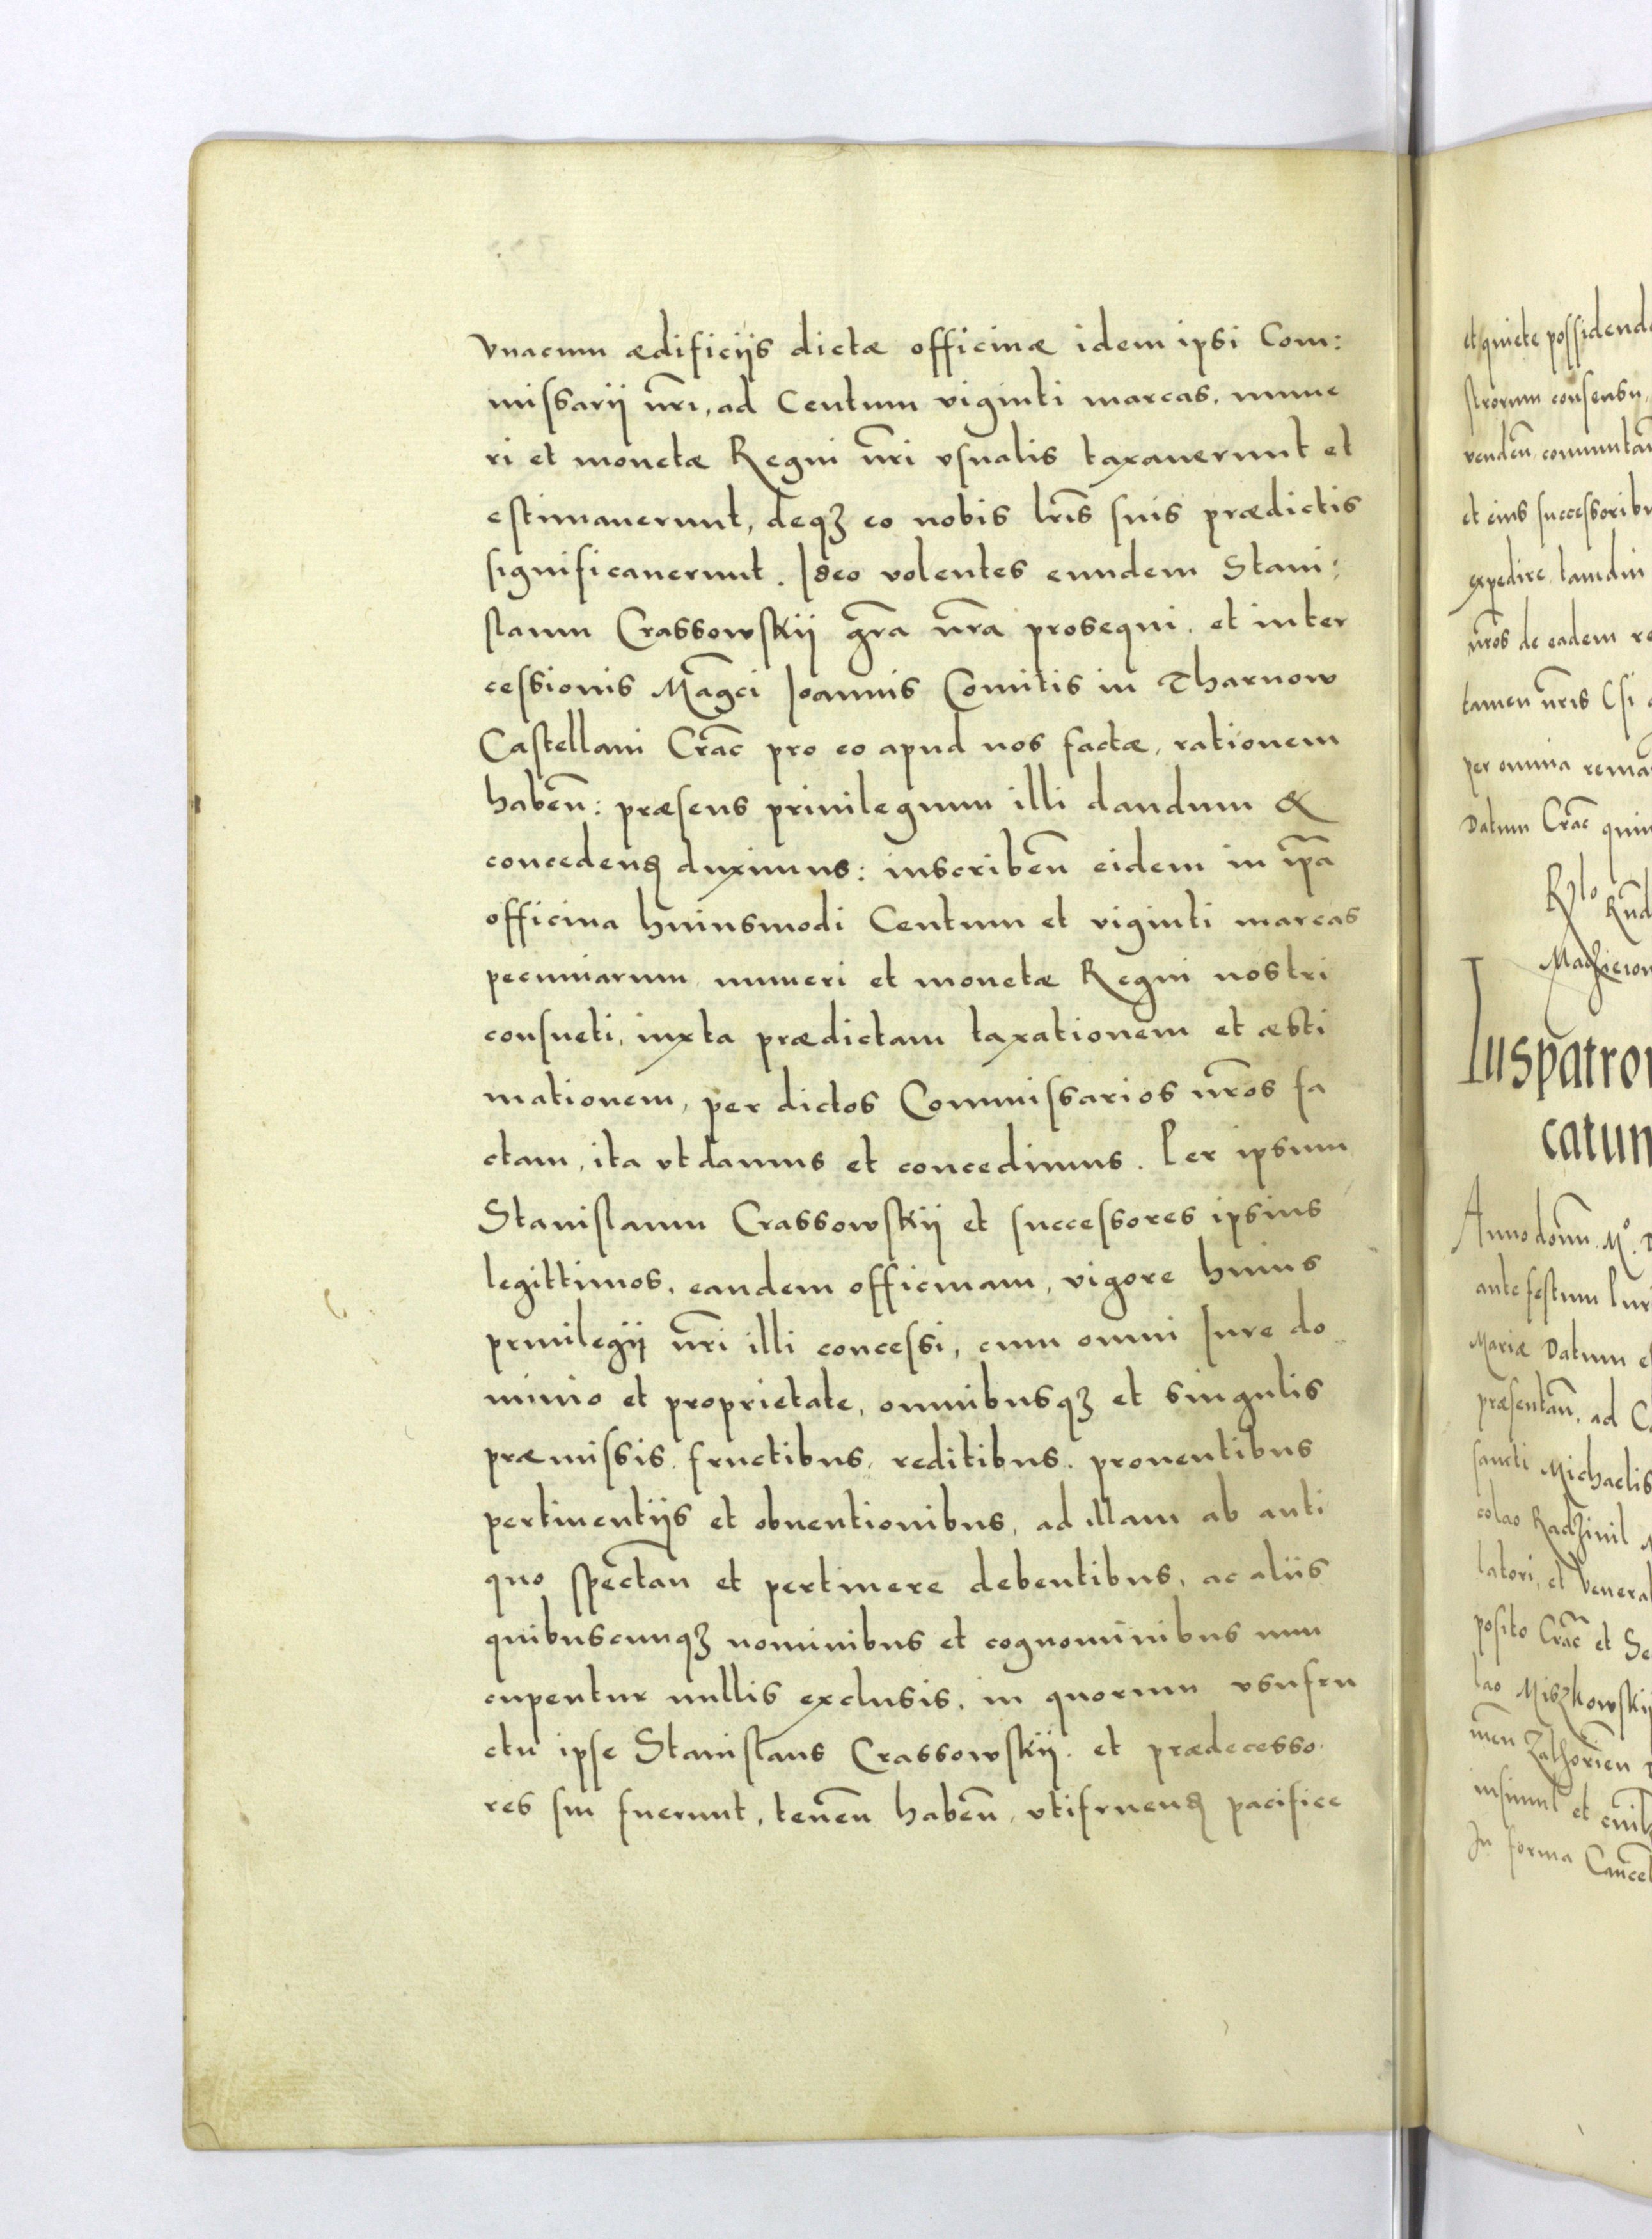 vnacum ædificijs dictæ officinæ idem ipsi Com:
missarij nr̄i, ad Centum viginti marcas, nume
ri et monetæ Regni nr̄i vsualis taxauerunt et
estimauerunt, deqꝫ eo nobis lr̄is suis prædictis
significauerunt. Ideo volentes eundem Stani:
slaum Crassowskij gr̄a nr̄a prosequi, et inter
cessionis Mag̅ci Joannis Comitis in Tharnow
Castellani Crac̄ pro eo apud nos factæ, rationem
haben̄: præsens priuilegium illi dandum &
concedenꝭ duximus: inscriben̄ eidem in ip̄a
officina huiusmodi Centum et viginti marcas
pecuniarum numeri et monetæ Regni nostri
consueti, iuxta prædictam taxationem et æsti
mationem, per dictos Commissarios nr̄os fa
ctam, ita vt damus et concedimus. Per ipsum
Stanislaum Crassowskij et successores ipsius
legittimos, eandem officinam, vigore huius
priuilegij nr̄i illi concessi, cum omni Iure do
minio et proprietate, omnibusqꝫ et singulis
præmissis, fructibus, reditibus, prouentibus
pertinentijs et obuentionibus, ad illam ab anti
quo spectan̄ et pertinere debentibus, ac aliis
quibuscunqꝫ nominibus et cognominibus nun
cupentur nullis exclusis, in quorum vsufru
ctu ipse Stanislaus Crassowskij et prædecesso
res sui fuerunt, tenen̄ haben̄, vtifruenꝭ pacifice
et quiete possidend
strorum consensu,
venden̄ commutan̄
et eius successoribu
expedire, tamdiu
nr̄os de eadem re
tamen nr̄is
per omnia reman̄
Datum Crac̄ quin
Iuspatron
catum
Anno domn̄ M°. D
ante festum Puri
Mariæ Datum e
præsentan̄, ad C
sancti Michaelis
colao Radziuil
latori, et Venera
posito Crac̄ et Se
lao Miszkowskij
men̄ Zathorien̄
insimul et ciuil
In forma Cancel